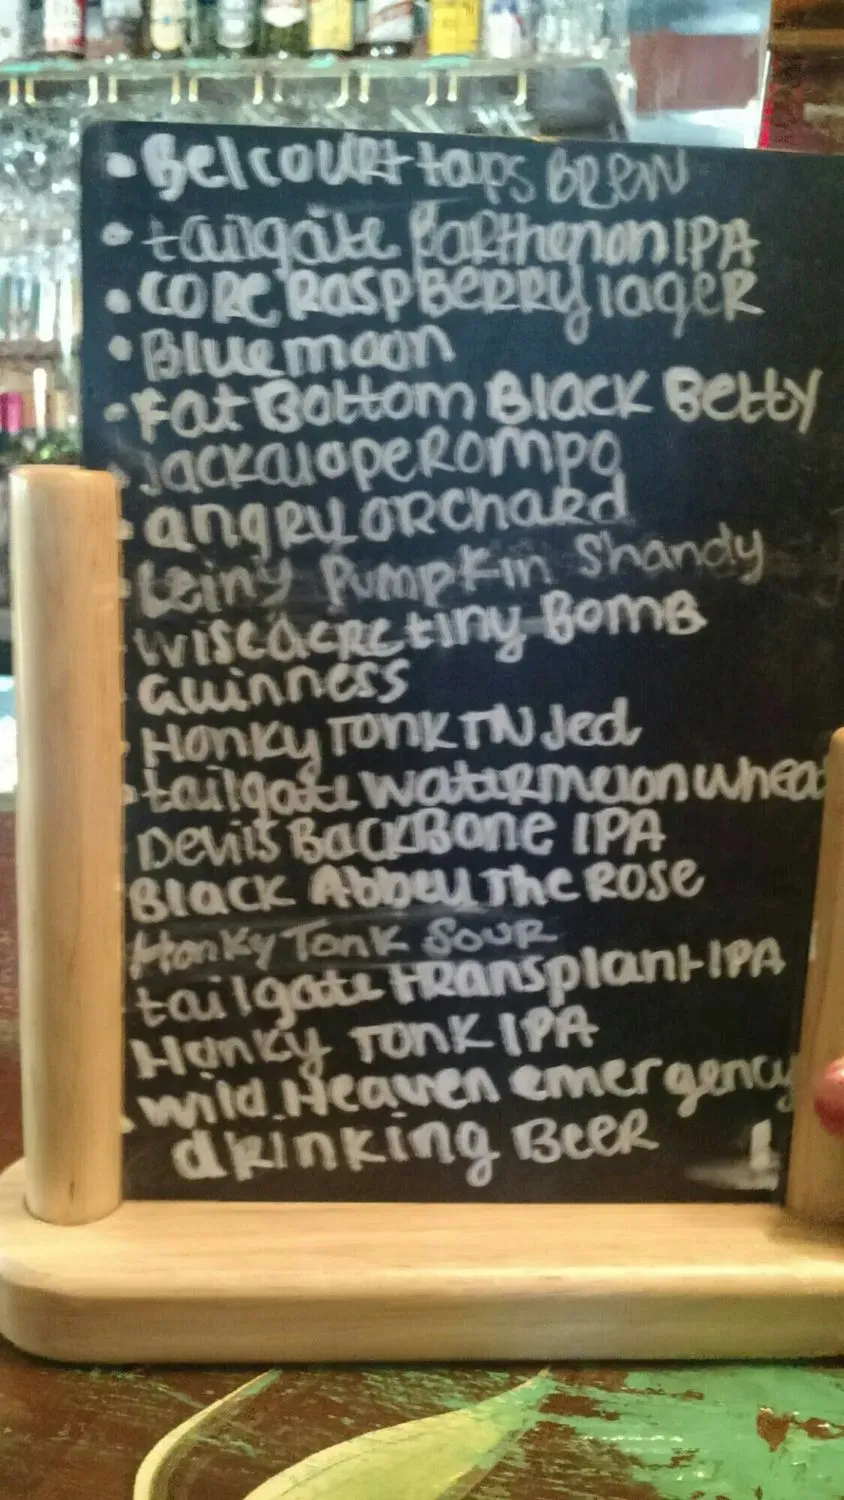 • Belcourt taps BREW
• tailgate Parthenon IPA
• CORE RaspBERRY lageR
• Bluemoon
• Fat Bottom Black Betty
Jackalope Rompo
• angRy ORchard
Leiny Pumpkin Shandy
wiseacre tiny BomB
Guinness
Honky Tonk TN Jed
• tailgate WateRmelon wheat
Devils BackBone IPA
Black Abbey The Rose
Honky Tonk SouR
tailgate tRansplant IPA
Honky TONK IPA
• wild Heaven emergency
dRinking BeeR